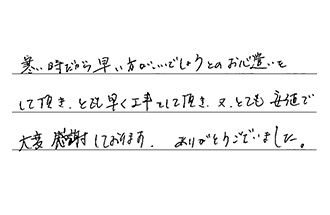 寒い時だから早い方がいいでしょうとのお心遣いを
して頂き、とても早く工事をして頂き、又、とても安価で
大変感謝しております。 ありがとうございました。